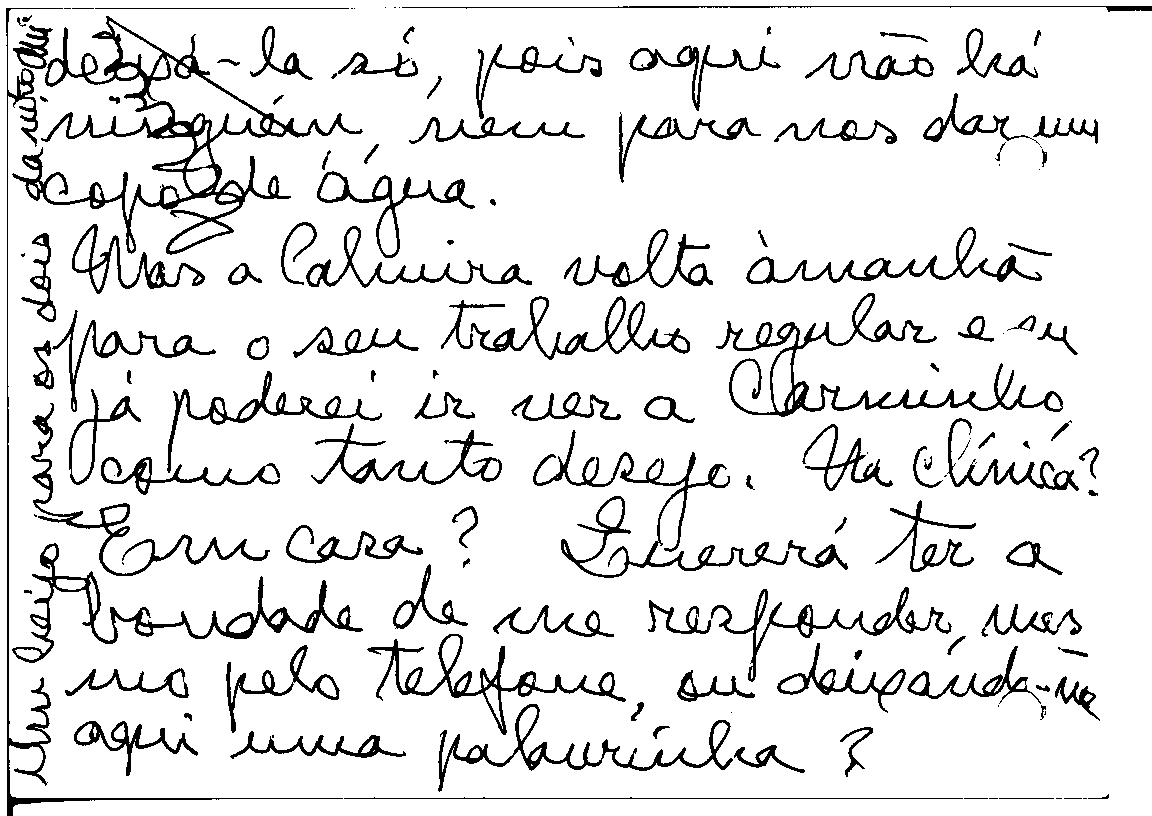 deixá-la só, pois aqui não há
ninguém, nem para nos dar um
copo de água.
Mas a Calmira volta àmanhã
para o seu trabalho regular e eu
já poderei ir ver a Carminho,
como tanto desejo. Na clínica?
Em casa? Quererá ter a
bondade de me responder, mes
mo pelo telefone, ou deixándo-me
aqui uma palavrínha?
Um beijo para os dois da